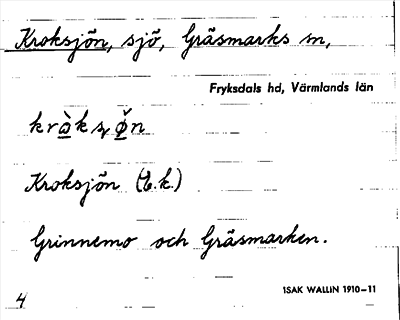 Kroksjön, sjö, Gräsmarks sn,
Fryksdals hd, Värmlands län
Kroksjön (b.k.)
Grinnemo och Gräsmarken.
4
ISAK WALLIN 1910–11